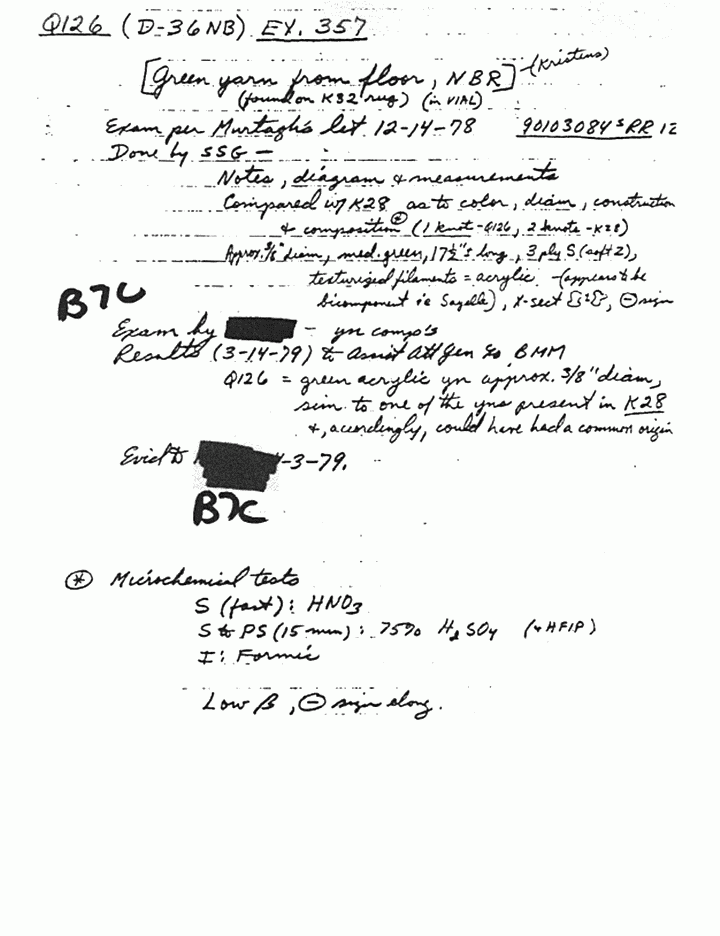 Q126 (D-36NB) EX. 357
[Green yarn from floor, NBR] -(Kristens)
(found on K32 rug) (in VIAL)
Exam per Murtagh's let 12-14-78 90103084 S RR 12
Done by SSG —
Notes, diagram & measurements
Compared w/ K28 as to color, diam, construction
& composition * (1 knot-Q126, 2 knots-K28)
Approx. 3/8" diam, med. green, 17½"s long, 3 ply S (soft Z),
texturized filaments = acrylic -(appears to be
bicomponent ie Sayelle), X-sect, ⊖ sign
B7C
Exam by — yn compo's
Results (3-14-79) to Assist Att Gen BMM
Q126 = green acrylic yn approx. 3/8" diam,
sim. to one of the yns present in K28
&, accordingly, could have had a common origin
Evid to -3-79.
B7C
* Microchemical tests
S (fast): HNO3
S to PS (15 min): 75% H2SO4 (& HFIP)
I: Formic
Low B, ⊖ sign elong.